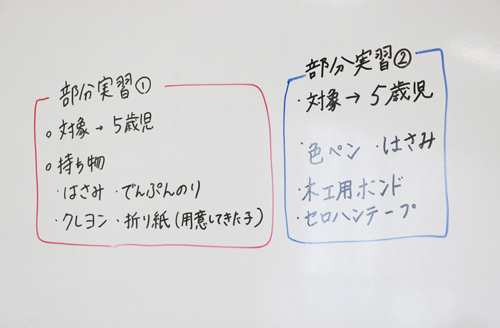 部分実習①
○対象→5歳児
○持ち物
・はさみ ・でんぷんのり
・クレヨン ・折り紙(用意してきた子)
部分実習②
・対象→5歳児
・色ペン ・はさみ
・木工用ボンド
・セロハンテープ